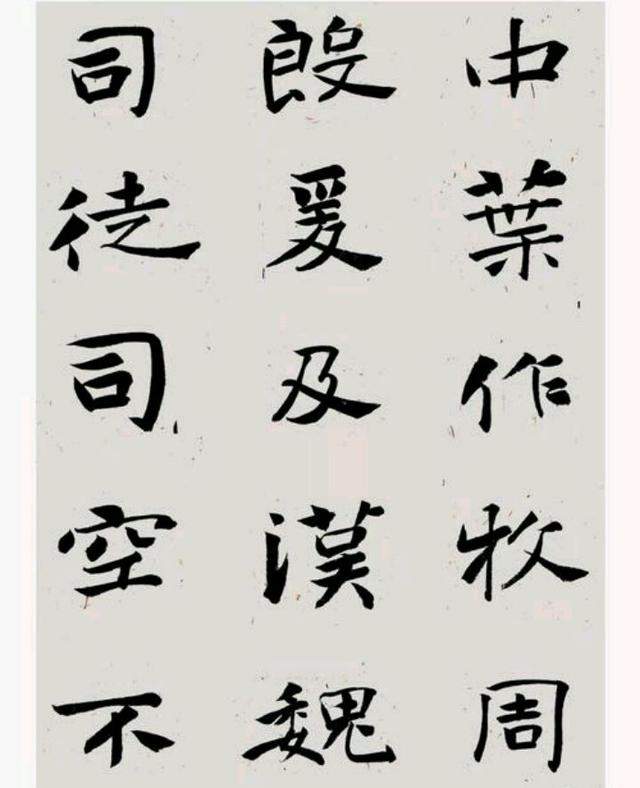 中葉作牧周
殷爰及漢魏
司徒司空不